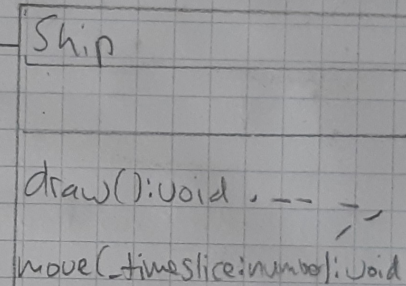 Ship
draw():void
move(_timeslice:number):void